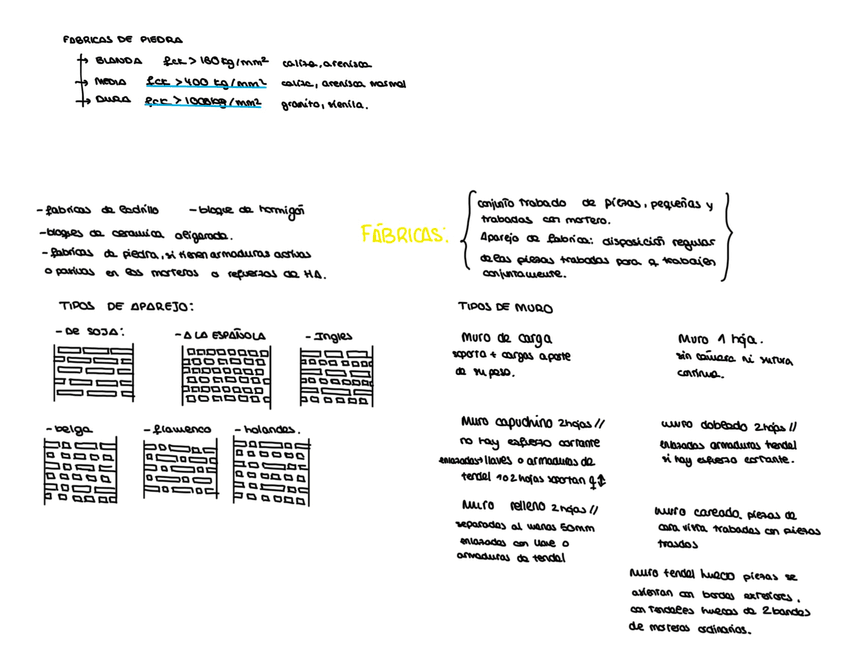 FABRICAS DE PIEDRA
→ BLANDA fck > 160 kg/mm² caliza, arenisca
→ MEDIA fck > 400 kg/mm² caliza, arenisca normal
→ DURA fck > 1000kg/mm² granito, sienita.
- fabricas de ladrillo - bloque de hormigón
- bloques de ceramica aligerada.
- fabricas de piedra, si tienen armaduras activas
o pasivas en los morteros o refuerzos de HA.
FÁBRICAS:
conjunto trabado de piezas, pequeñas y
trabadas con mortero.
Aparejo de fabrica: disposición regular
de las piezas trabadas para q trabajen
conjuntamente.
TIPOS DE APAREJO:
- DE SOJA:
- A LA ESPAÑOLA
- Ingles
- belga
- flamenco
- holandes.
TIPOS DE MURO
Muro de carga
soporta + cargas aparte
de su peso.
Muro 1 hoja.
sin cámara ni sutura
continua.
Muro capuchino 2hojas //
no hay esfuerzo cortante
enlazadas llaves o armaduras de
tendel 1 o 2 hojas soportan
muro doblado 2hojas //
enlazadas armaduras tendel
si hay esfuerzo cortante.
Muro relleno 2hojas //
separadas al menos 50mm
enlazadas con llave o
armaduras de tendel
muro careado. piezas de
cara vista trabadas con piezas
trasdos
muro tendel hueco piezas se
asientan con bordes exteriores,
con tendeles huecos de 2 bandas
de morteros ordinarios.